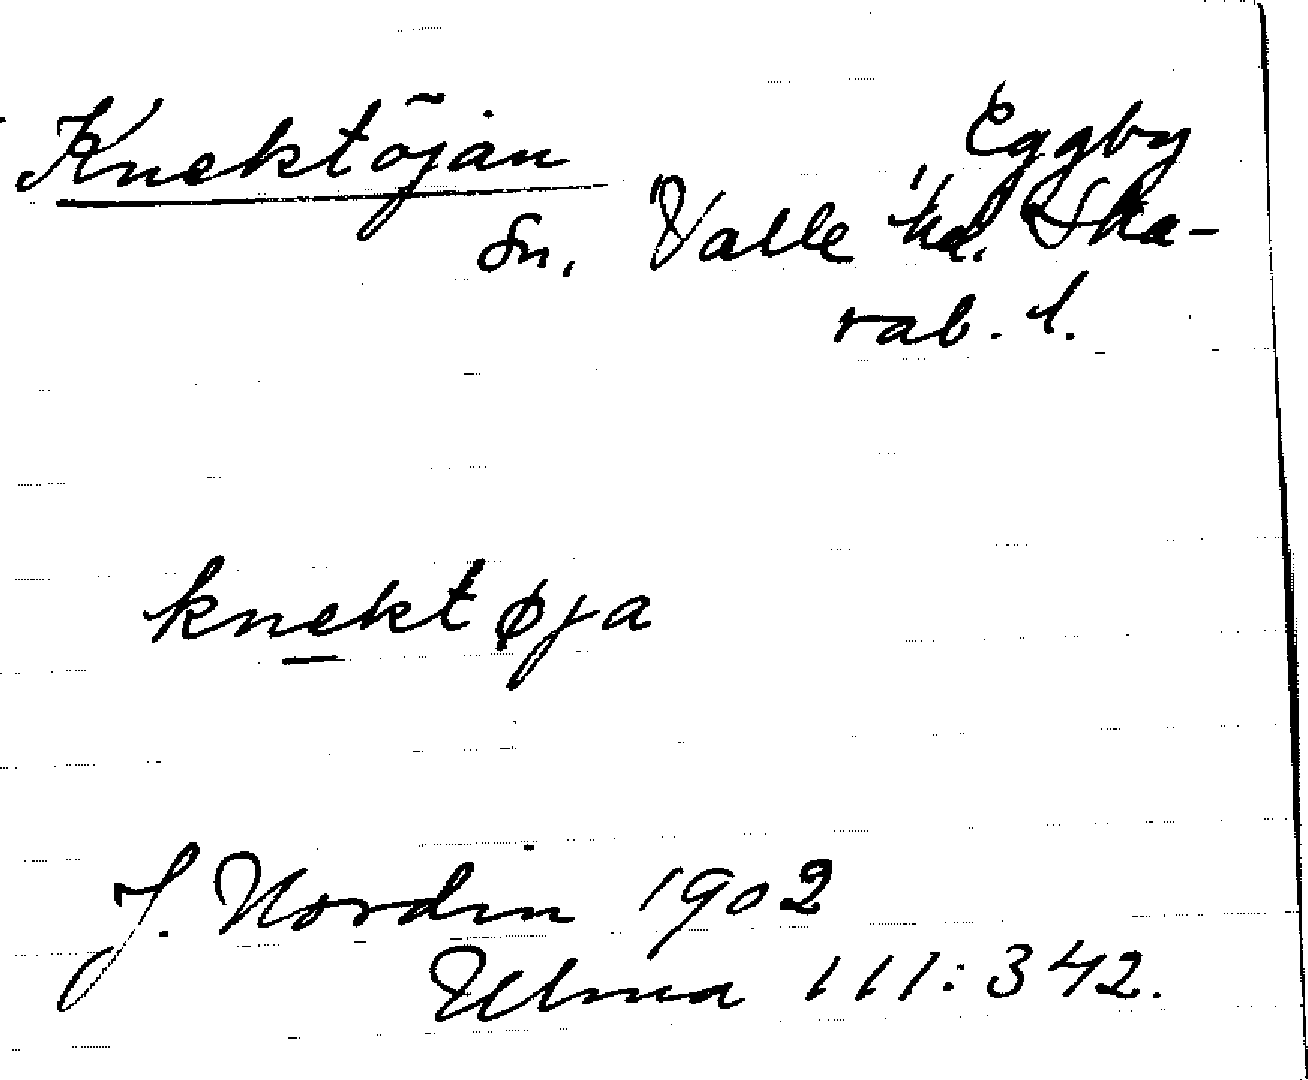 Knektöjan Eggby
Sn. Valle hd. Ska-
rab. l.
knekt øja
J. Nordin 1902
Ulma 111:342.